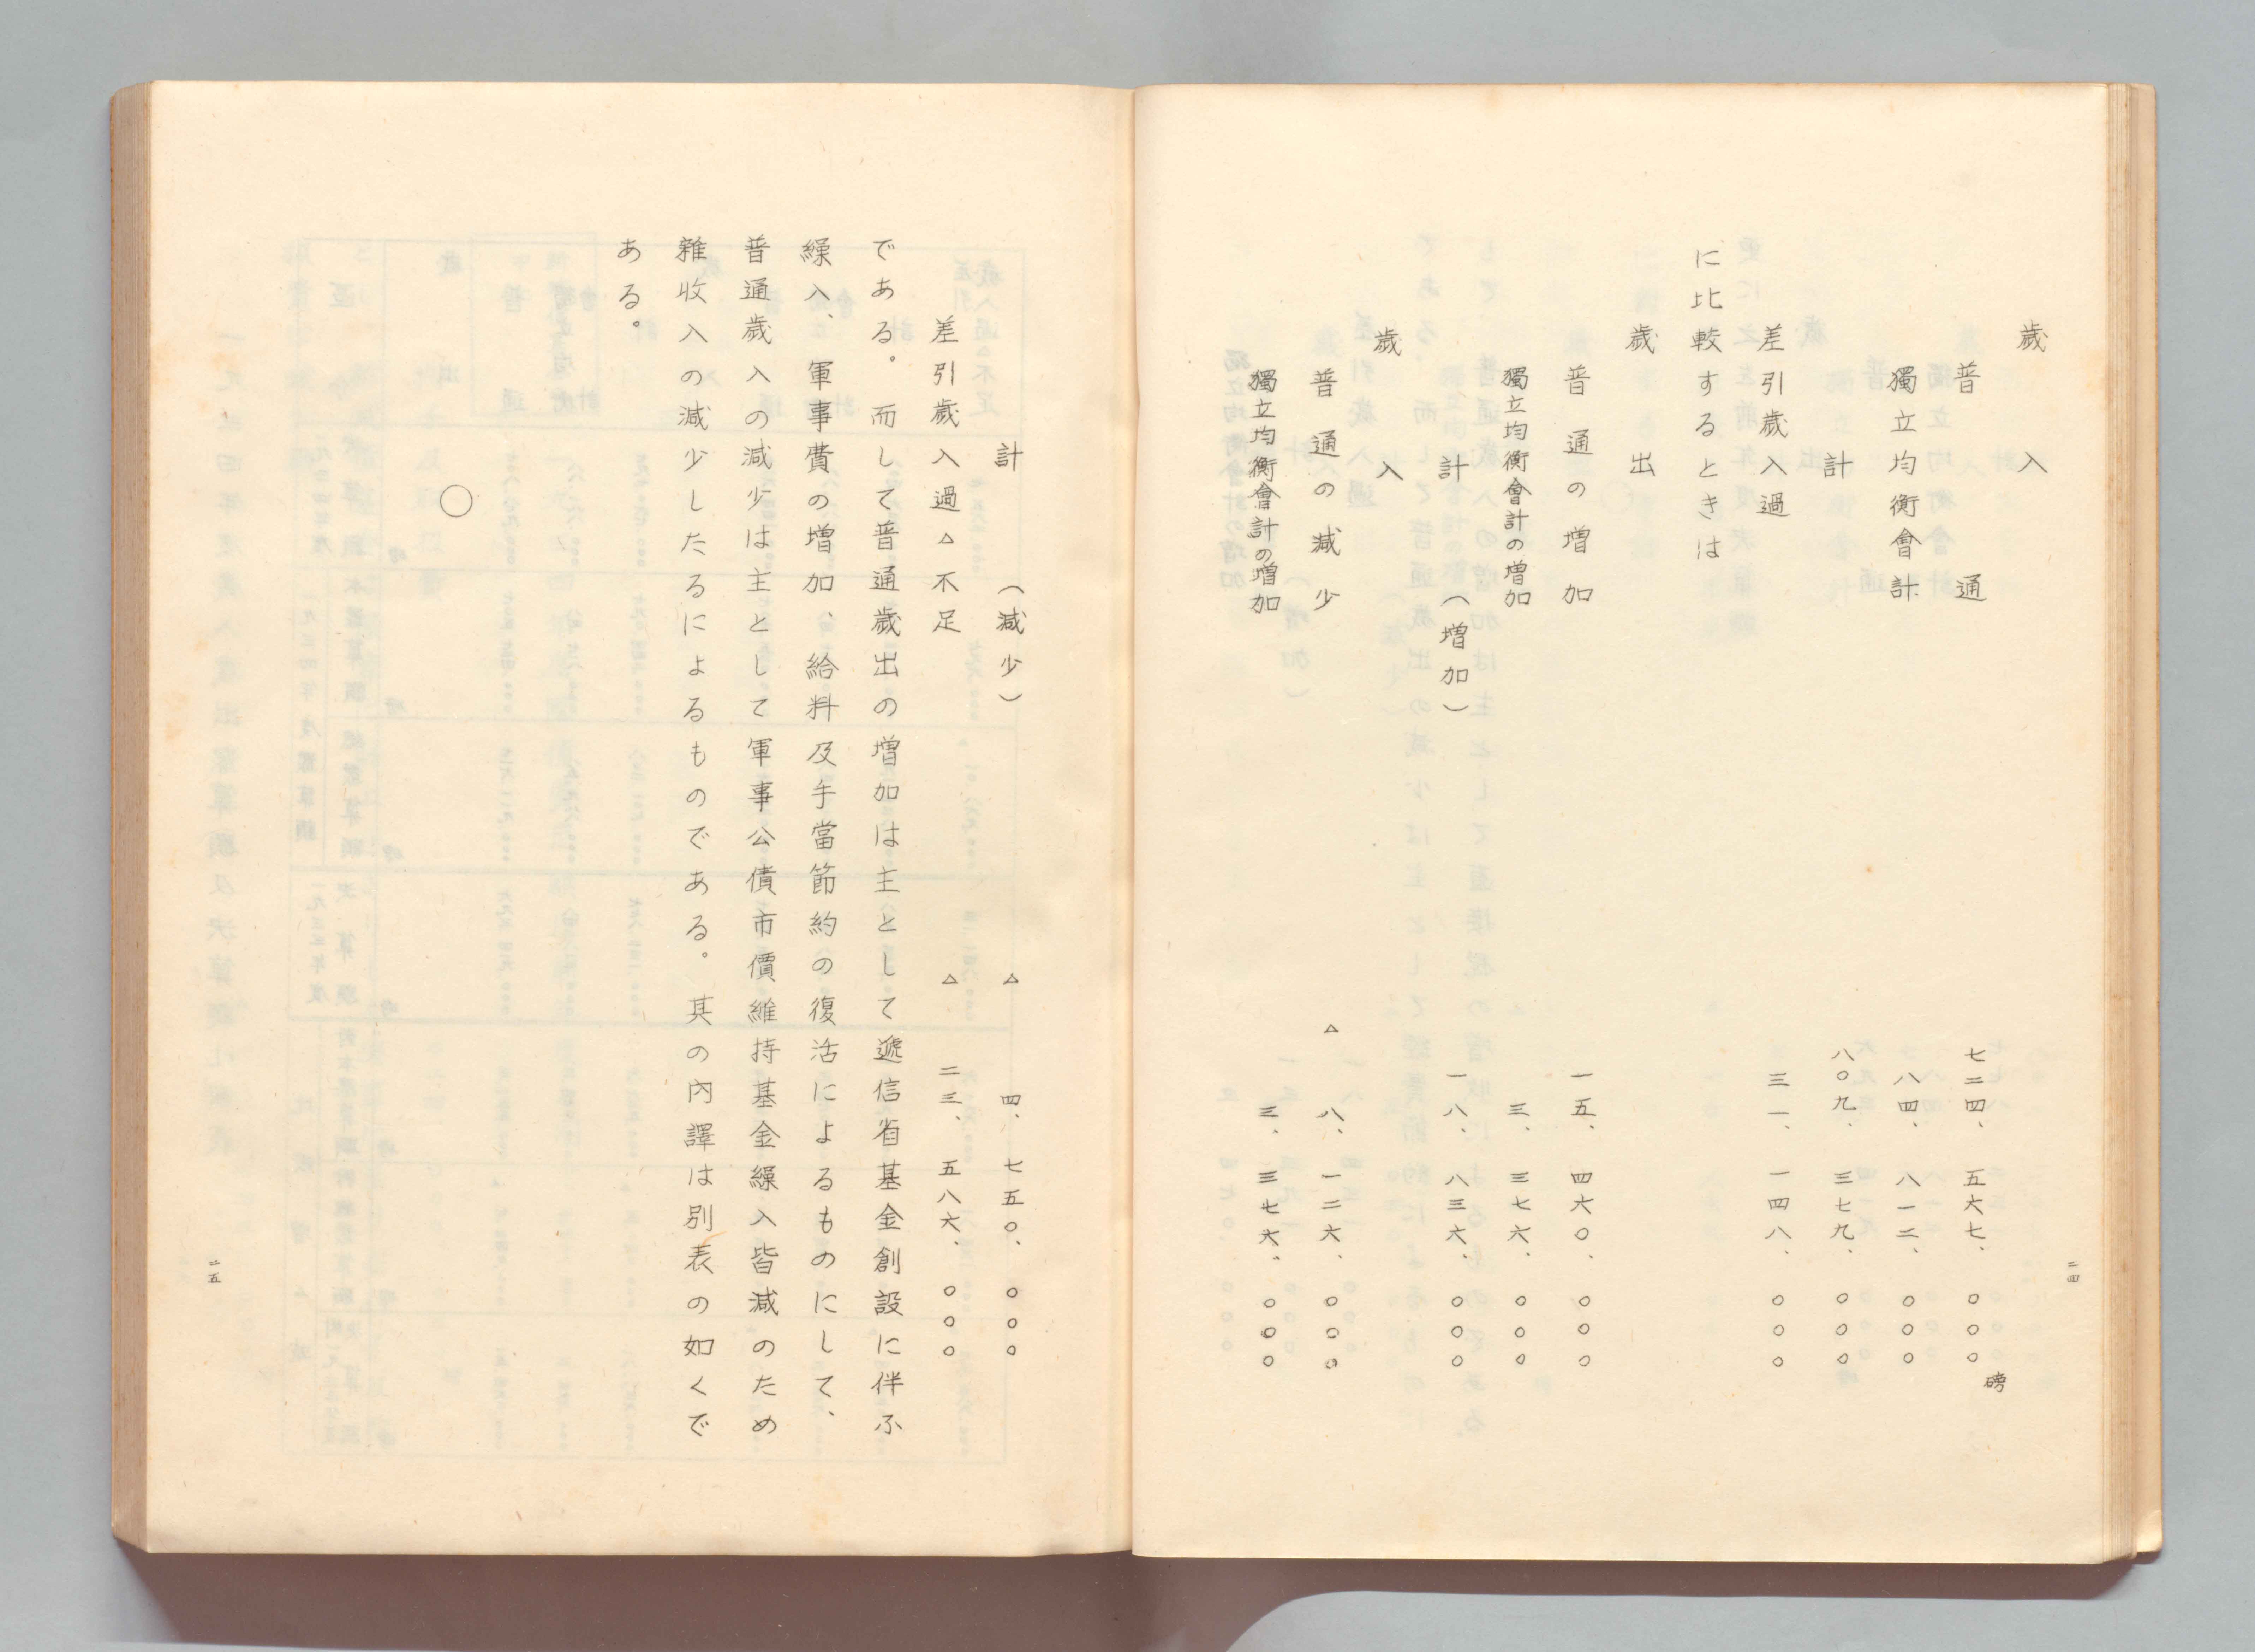 歳入
普通 七二四、五六七、〇〇〇磅
獨立均衡會計 八四、八一二、〇〇〇
計 八〇九、三七九、〇〇〇
差引歳入過 三一、一四八、〇〇〇
に比較するときは
歳出
普通の増加 一五、四六〇、〇〇〇
獨立均衡會計の増加 三、三七六、〇〇〇
計(増加) 一八、八三六、〇〇〇
歳入
普通の減少 △ 八、一二六、〇〇〇
獨立均衡會計の増加 三、三七六、〇〇〇
二四
計(減少) △ 四、七五〇、〇〇〇
差引歳入過△不足 △ 二三、五八六、〇〇〇
である。而して普通歳出の増加は主として遞信省基金創設に伴ふ
繰入、軍事費の増加、給料及手當節約の復活によるものにして、
普通歳入の減少は主として軍事公債市價維持基金繰入皆減のため
雜收入の減少したるによるものである。其の內譯は別表の如くで
ある。
〇
二五